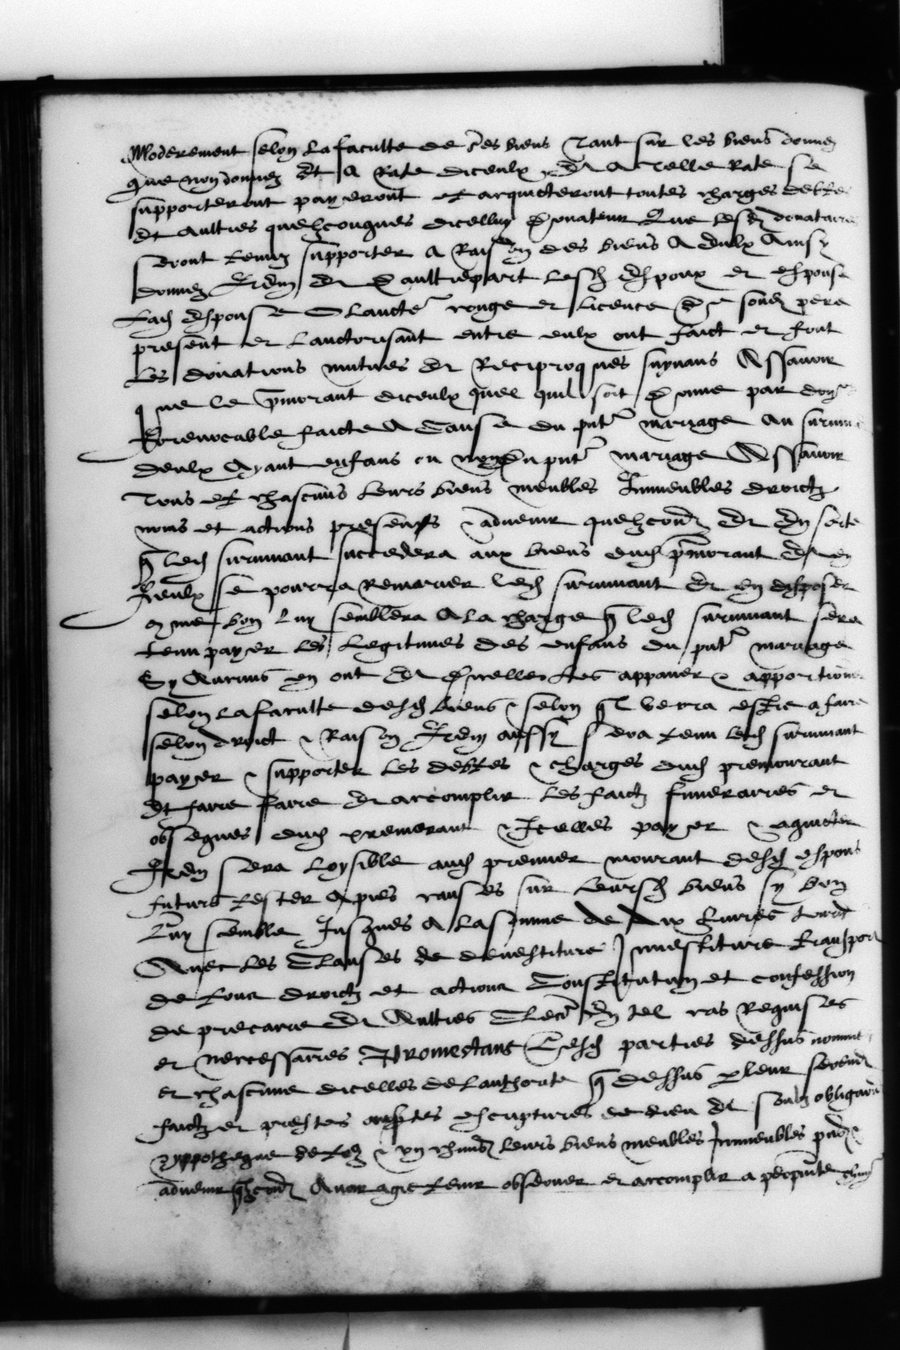 Moderement selon la faculte de ses biens tant sur les biens donnez
que non donnez Et a rate diceulx Et a telle rate se
supporteront payeront et acquicteront toutes charges debtes
et aultres quelzconques dicelluy donateur Que lesd donataires
seront tenuz supporter a raison des biens a eulx ainsy
donnez Item Et daultrepart lesd espoux et espouse
lad espouse o lauctē conge et licence de sond pere
present et lauctorisant entre eulx ont faict et font
les donations mutues et reciproques suyvans Assavoir
que le p̄morant diceulx quel quil soit donne par don
Irrevocable faicte a cause du put mariage au survivant
deulx ayant enfans ou non du put mariage Assavoir
Tous et chascuns leurs biens meubles Immeubles droictz
noms et actions presens & advenir quelzconqz Et en sorte
q led survivant succedera aux biens dud p̄morant Et en
Iceulx se pourra remarier led survivant Et en disposer
come bon luy semblera A la charge q led survivant sera
tenu payer les legitimes des enfans du put mariage
Sy aucuns en ont Et Icelles les appaner & apportionner
selon la faculte desd biens & selon ql verra estre a faire
selon droict & raison Item aussy sera tenu led survivant
payer & supporter les debtes & charges dud premourant
Et faire faire Et accomplir les faictz funeraires et
obseques dud premorant & Icelles payer & aquicter
Item sera loysible aud premier mourant desd espoux
futurs tester a pies causes sur leursd biens sy bon
luy semble Jusques a la somme de dix livres tourn
Avec les clauses de devestiture Investiture transport
de tous droictz et actions Constitution et confession
de precaire Et aultres en tel cas requises
et neccessaires Promectans lesd parties dessus nommees
et chascune dicelles de lauthorite q dessus p leur serment
faictz et prestes escriptures de dieu Et soubz obligation
& yppotheque de to & un chun leurs biens meubles Immeubles pns &
advenir qlzconqz Avoir agre tenir observer et accomplir a perpetuite